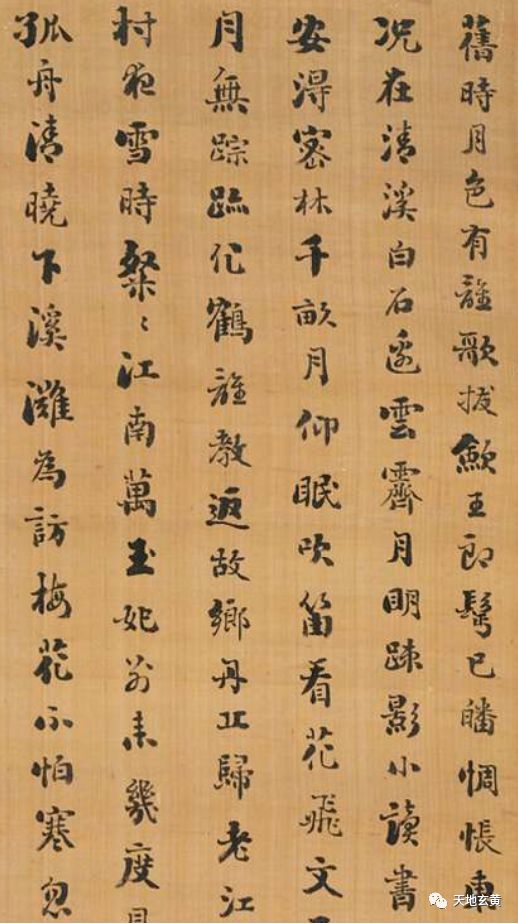 舊時月色有誰歌拔劍王郎鬢已皤惆悵東
况在清溪白石邊雲霽月明踈影小讀書
安得密林千畝月仰眠吹笛看花飛文
月無踪跡化鶴誰教返故鄉丹丘歸老江
村夜雪時粲〻江南萬玉妃別来幾度見
孤舟清曉下溪灘為訪梅花不怕寒忽
天地玄黄